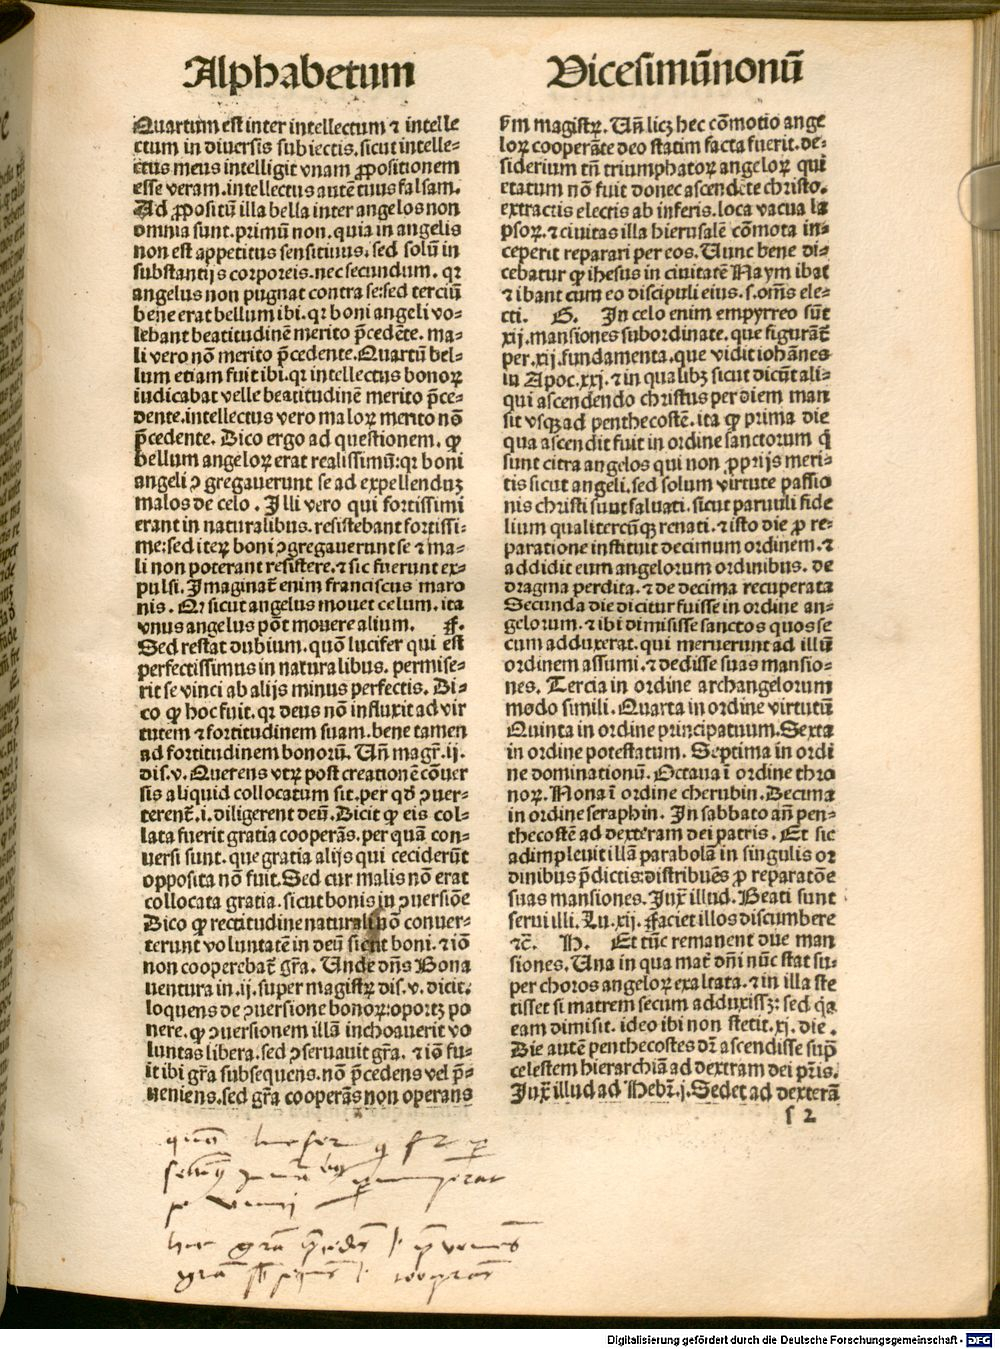 Alphabetum
Vicesimu᷑nonu᷑
Quartum est inter intellectum ⁊ intelle
ctum in diuersis subiectis. sicut intelle-
ctus meus intelligit vnam ꝓpositionem
esse veram. intellectus autē tuus falsam.
Ad ꝓpositū illa bella inter angelos non
omnia sunt. primū non. quia in angelis
non est appetitus sensitiuus. sed solū in
substantijs corporeis. nec secundum. qꝛ
angelus non pugnat contra se: sed terciū
bene erat bellum ibi. qꝛ boni angeli vo-
lebant beatitudinē merito p̄cedēte. ma-
li vero nō merito p̄cedente. Quartū bel-
lum etiam fuit ibi. qꝛ intellectus bonoꝝ
iudicabat velle beatitudinē merito p̄ce-
dente. intellectus vero maloꝝ merito nō
p̄cedente. Dico ergo ad questionem. ꝙ
bellum angeloꝝ erat realissimū: qꝛ boni
angeli ꝯgregauerunt se ad expellenduꝫ
malos de celo. Illi vero qui fortissimi
erant in naturalibus. resistebant fortissi-
me: sed iteꝝ boni ꝯgregauerunt se ⁊ ma-
li non poterant resistere. ⁊ sic fuerunt ex-
pulsi. Imaginat᷑ enim franciscus maro
nis. Qꝛ sicut angelus mouet celum. ita
vnus angelus pōt mouere alium. F.
Sed restat dubium. quō lucifer qui est
perfectissimus in naturalibus. permise-
rit se vinci ab alijs minus perfectis. Di-
co ꝙ hoc fuit. qꝛ deus nō influxit ad vir
tutem ⁊ fortitudinem suam. bene tamen
ad fortitudinem bonorū. Uñ magr̄. ij.
dis. v. Querens vtꝝ post creationē cōuer
sis aliquid collocatum sit. per qď ꝯuer-
terent᷑. i. diligerent deū. Dicit ꝙ eis col-
lata fuerit gratia cooperās. per quā con-
uersi sunt. que gratia alijs qui ceciderūt
opposita nō fuit. Sed cur malis nō erat
collocata gratia. sicut bonis in ꝯuersiōe
Dico ꝙ rectitudine naturali nō conuer-
terunt voluntatē in deū sicut boni. ⁊ iō
non cooperebat᷑ gr̄a. Unde dn̄s Bona
uentura in. ij. super magistꝝ dis. v. dicit.
loquens de ꝯuersione bonoꝝ: oportꝫ po
nere. ꝙ ꝯuersionem illā inchoauerit vo
luntas libera. sed ꝯseruauit gr̄a. ⁊ iō fu-
it ibi gr̄a subsequens. nō p̄cedens vel p̄-
ueniens. sed gr̄a cooperās non operans
ẜm magistꝝ. Uñ licꝫ hec cōmotio ange
loꝝ cooperāte deo statim facta fuerit. de-
siderium tn̄ triumphatoꝝ angeloꝝ qui
etatum nō fuit donec ascendēte christo.
extractis electis ab inferis. loca vacua la
psoꝝ. ⁊ ciuitas illa hierusalē cōmota in-
ceperit reparari per eos. Nunc bene di-
cebatur ꝙ ihesus in ciuitatē Naym ibat
⁊ ibant cum eo discipuli eius. s. om̄s ele-
cti. G. In celo enim empyrreo sūt
xij. mansiones subordinate. que figurāt᷑
per. xij. fundamenta. que vidit iohānes
in Apoc. xxj. ⁊ in qua libꝫ sicut dicūt ali-
qui ascendendo christus per diem man
sit vsqꝫ ad penthecostē. ita ꝙ prima die
qua ascendit fuit in ordine sanctorum q̄
sunt citra angelos qui non ꝓprijs meri-
tis sicut angeli. sed solum virtute passio
nis christi sunt saluati. sicut paruuli fide
lium qualitercūqꝫ renati. ⁊ isto die ꝓ re-
paratione instituit decimum ordinem. ⁊
addidit eum angelorum ordinibus. de
dragma perdita. ⁊ de decima recuperata
Secunda die dicitur fuisse in ordine an-
gelorum. ⁊ ibi dimisisse sanctos quos se
cum adduxerat. qui meruerunt ad illū
ordinem assumi. ⁊ dedisse suas mansio-
nes. Tercia in ordine archangelorum
modo simili. Quarta in ordine virtutū
Quinta in ordine principatuum. Sexta
in ordine potestatum. Septima in ordi
ne dominationū. Octaua ī ordine thro
noꝝ. Nona ī ordine cherubin. Decima
in ordine seraphin. In sabbato añ pen-
thecostē ad dexteram dei patris. Et sic
adimpleuit illā parabolā in singulis or
dinibus p̄dictis: distribuēs ꝓ reparatōe
suas mansiones. Iux̄ illud. Beati sunt
serui illi. Lu. xij. Faciet illos discumbere
⁊c̄. H. Et tūc remanent due man
siones. Una in qua mat᷑ dn̄i nūc stat su-
per choros angeloꝝ exaltata. ⁊ in illa ste
tisset si matrem secum adduxissꝫ: sed q̇a
eam dimisit. ideo ibi non stetit. xj. die.
Die autē penthecostes dr̄ ascendisse sup̄
celestem hierarchiā ad dextram dei pr̄is.
Iux̄ illud ad Hebr̄. j. Sedet ad dexterā
s 2
Digitalisierung gefördert durch die Deutsche Forschungsgemeinschaft - DFG